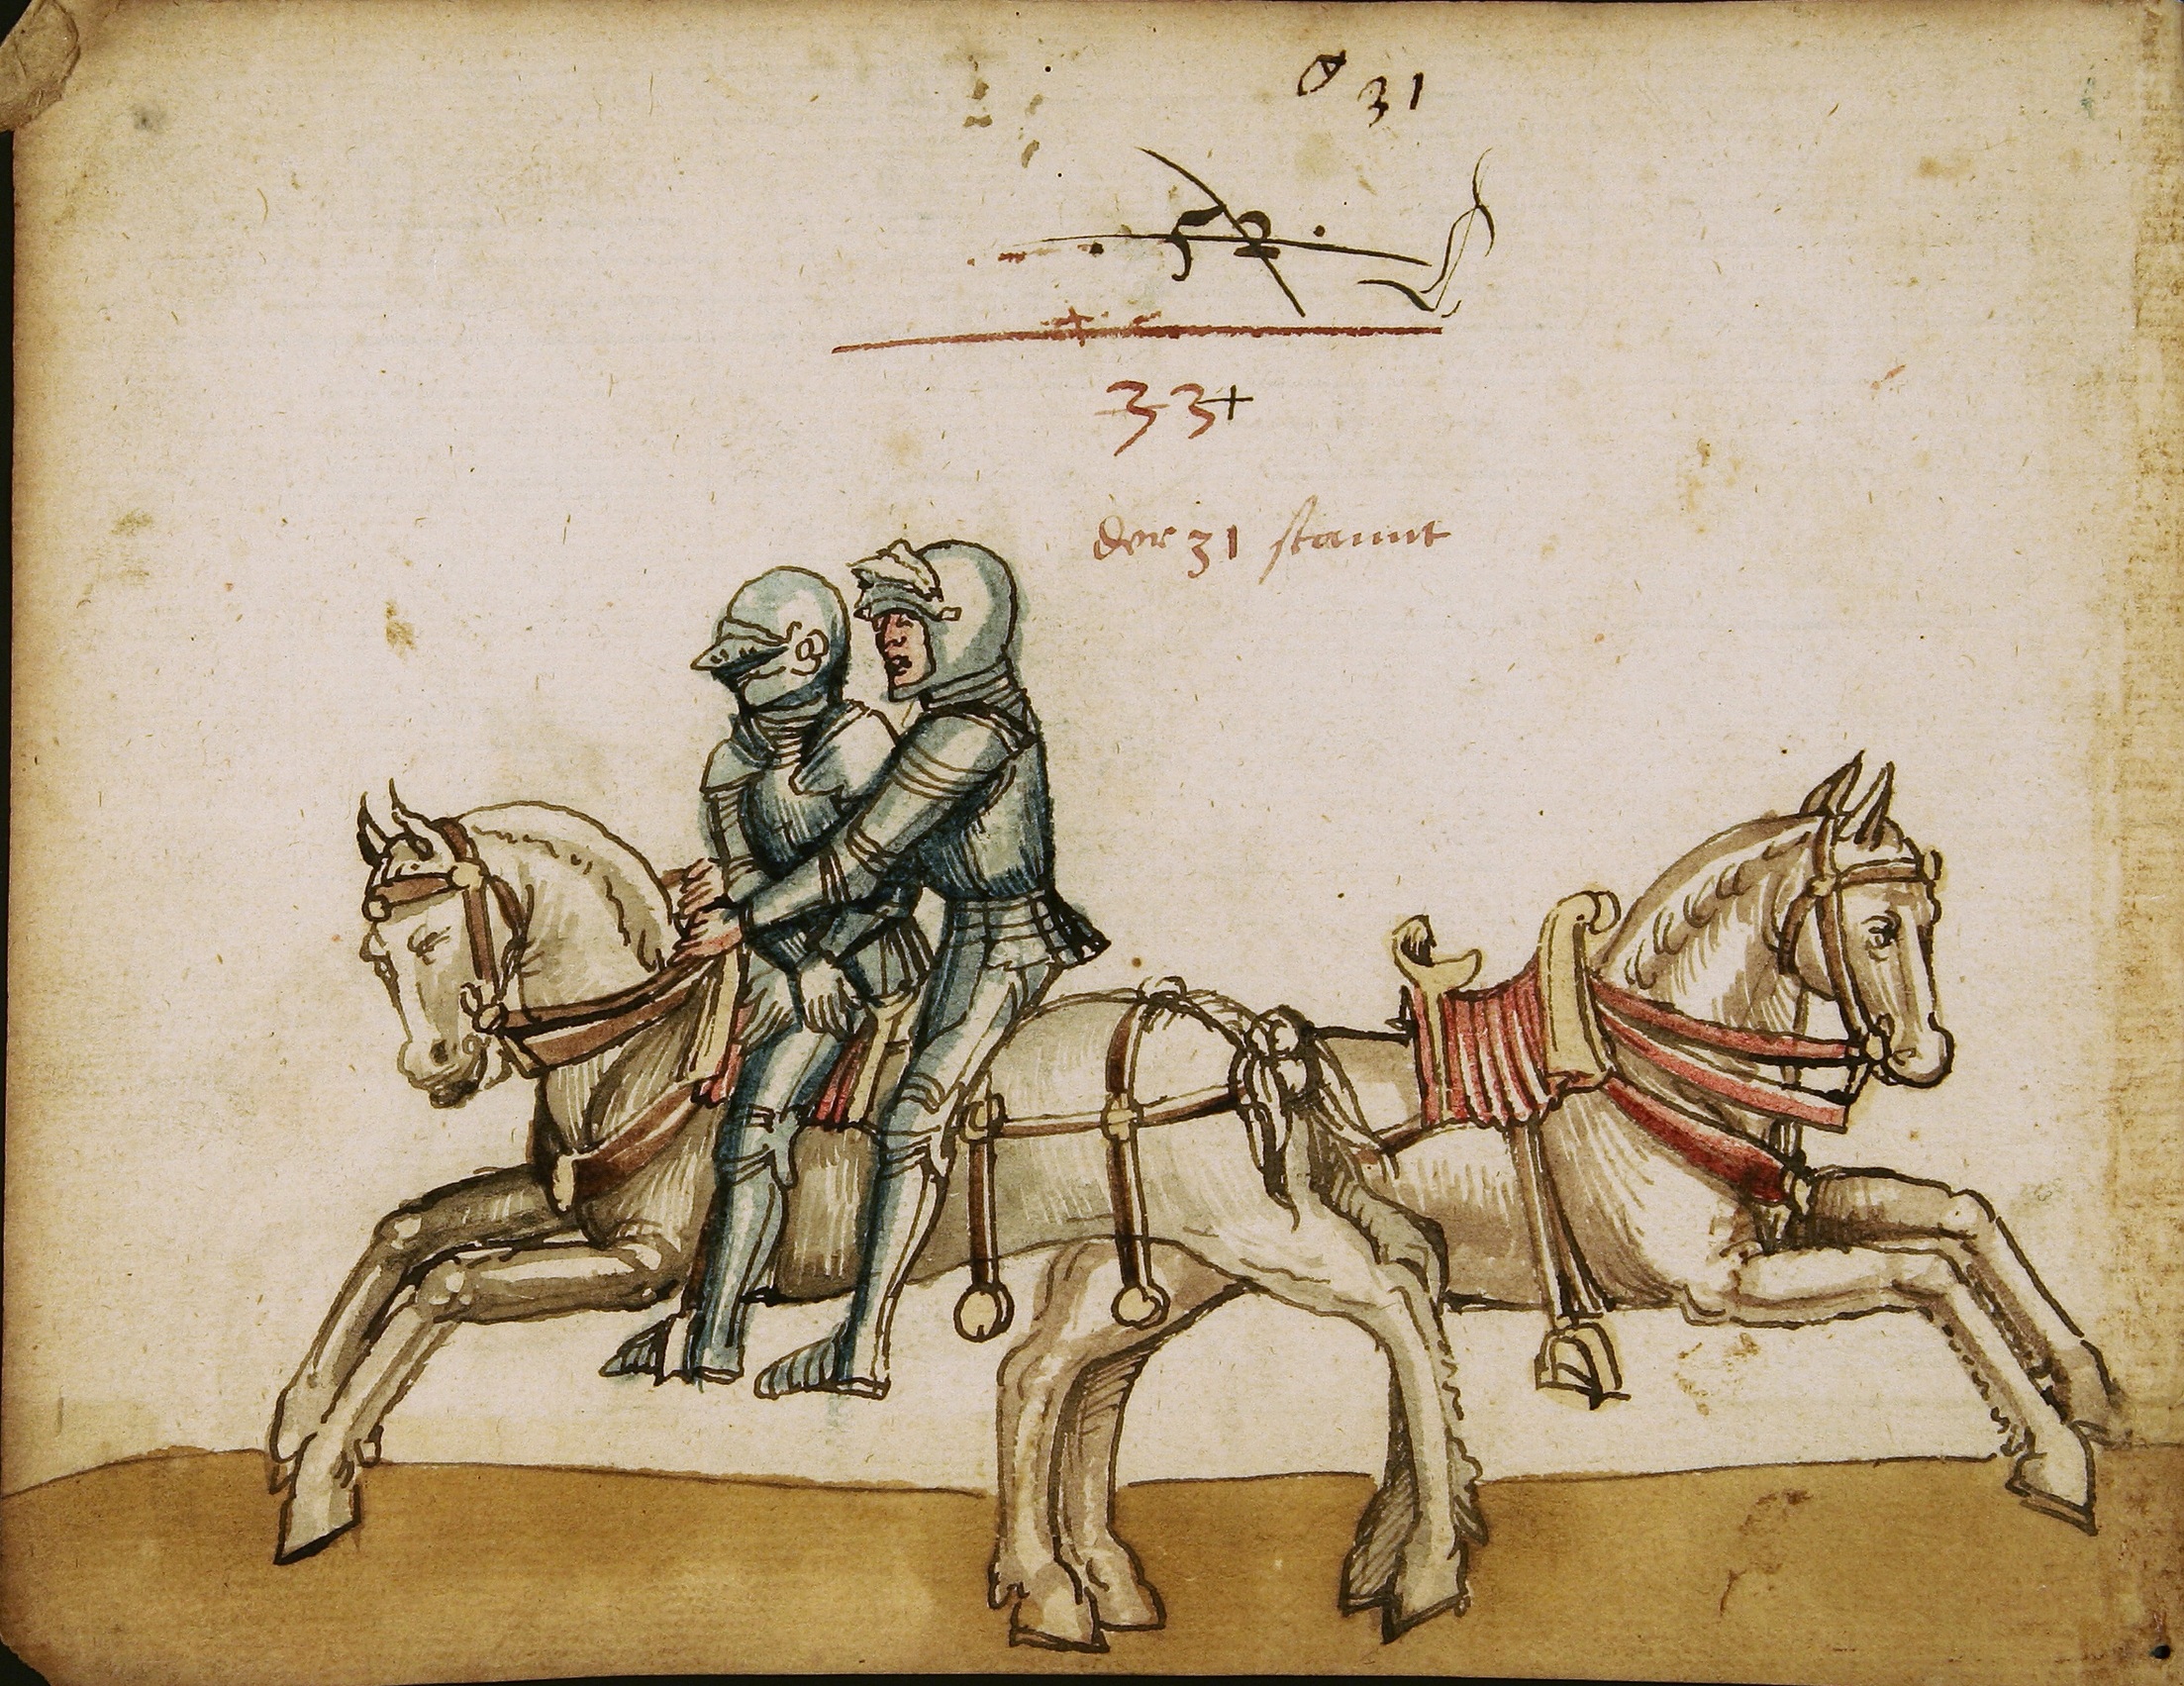 31
52
33+
der 31 stannt